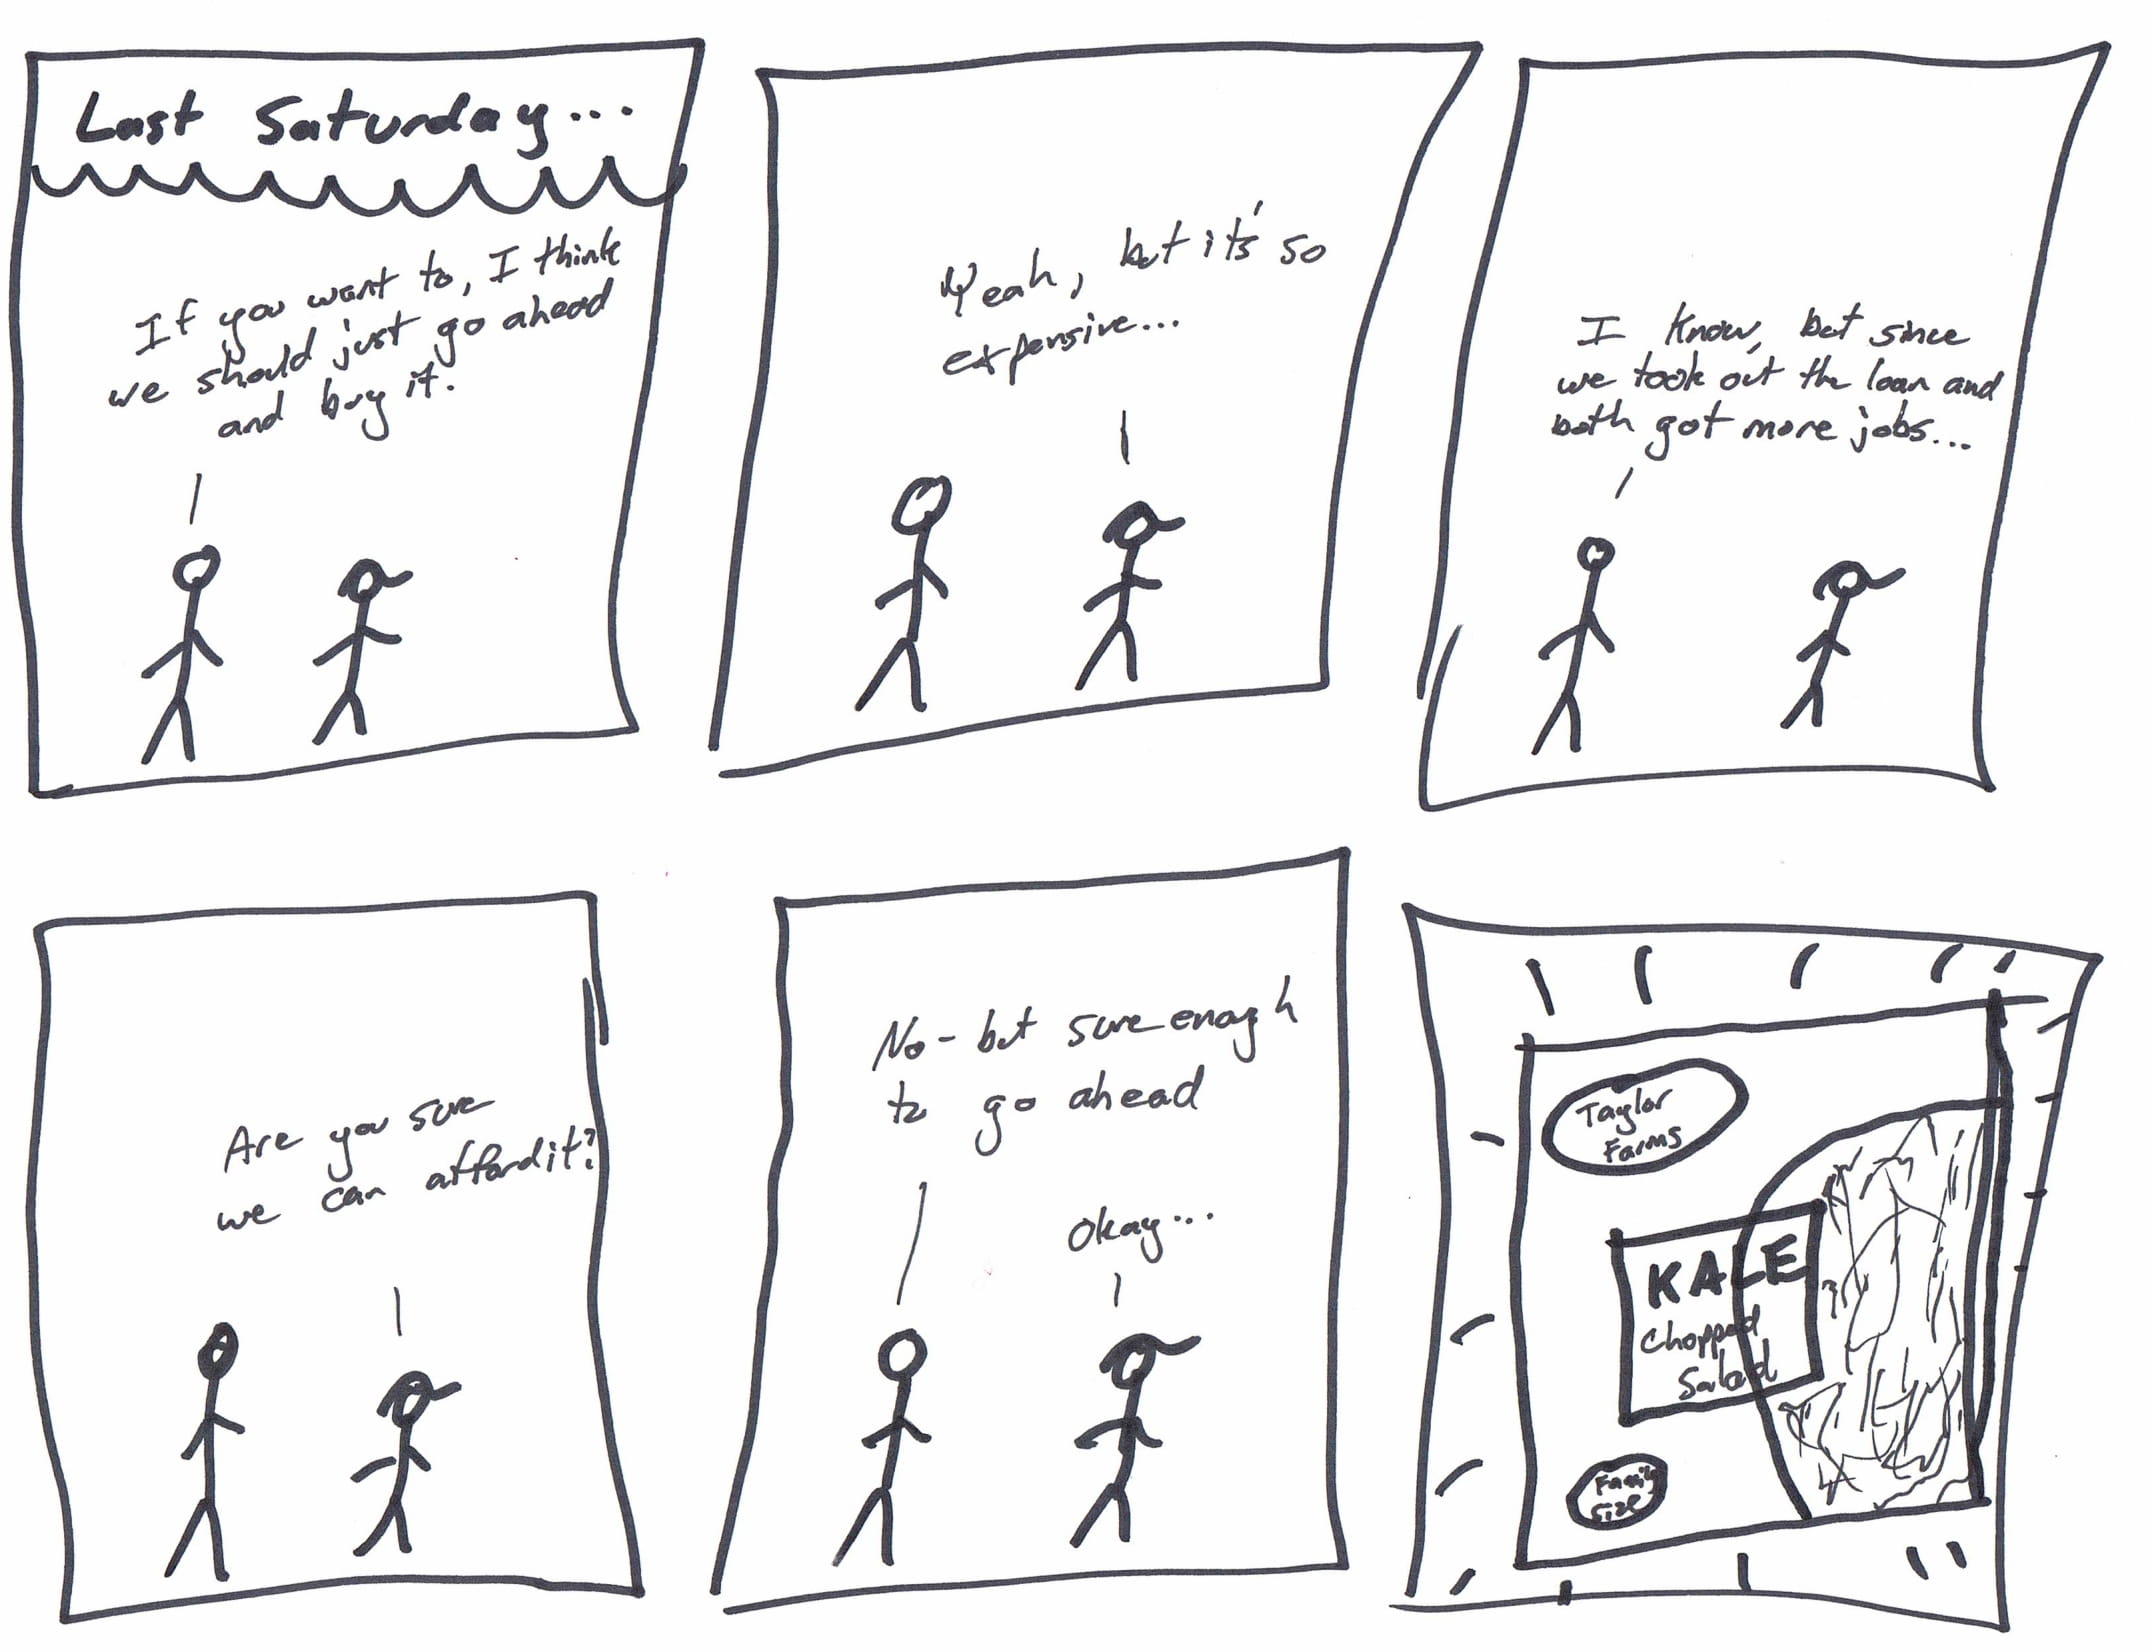 Last Saturday...
If you want to, I think
we should just go ahead
and buy it.
Yeah, but it's so
expensive...
I know, but since
we took out the loan and
both got more jobs...
Are you sure
we can afford it?
No - but sure enough
to go ahead
Okay...
Taylor
Farms
KALE
Chopped
Salad
Family
Size